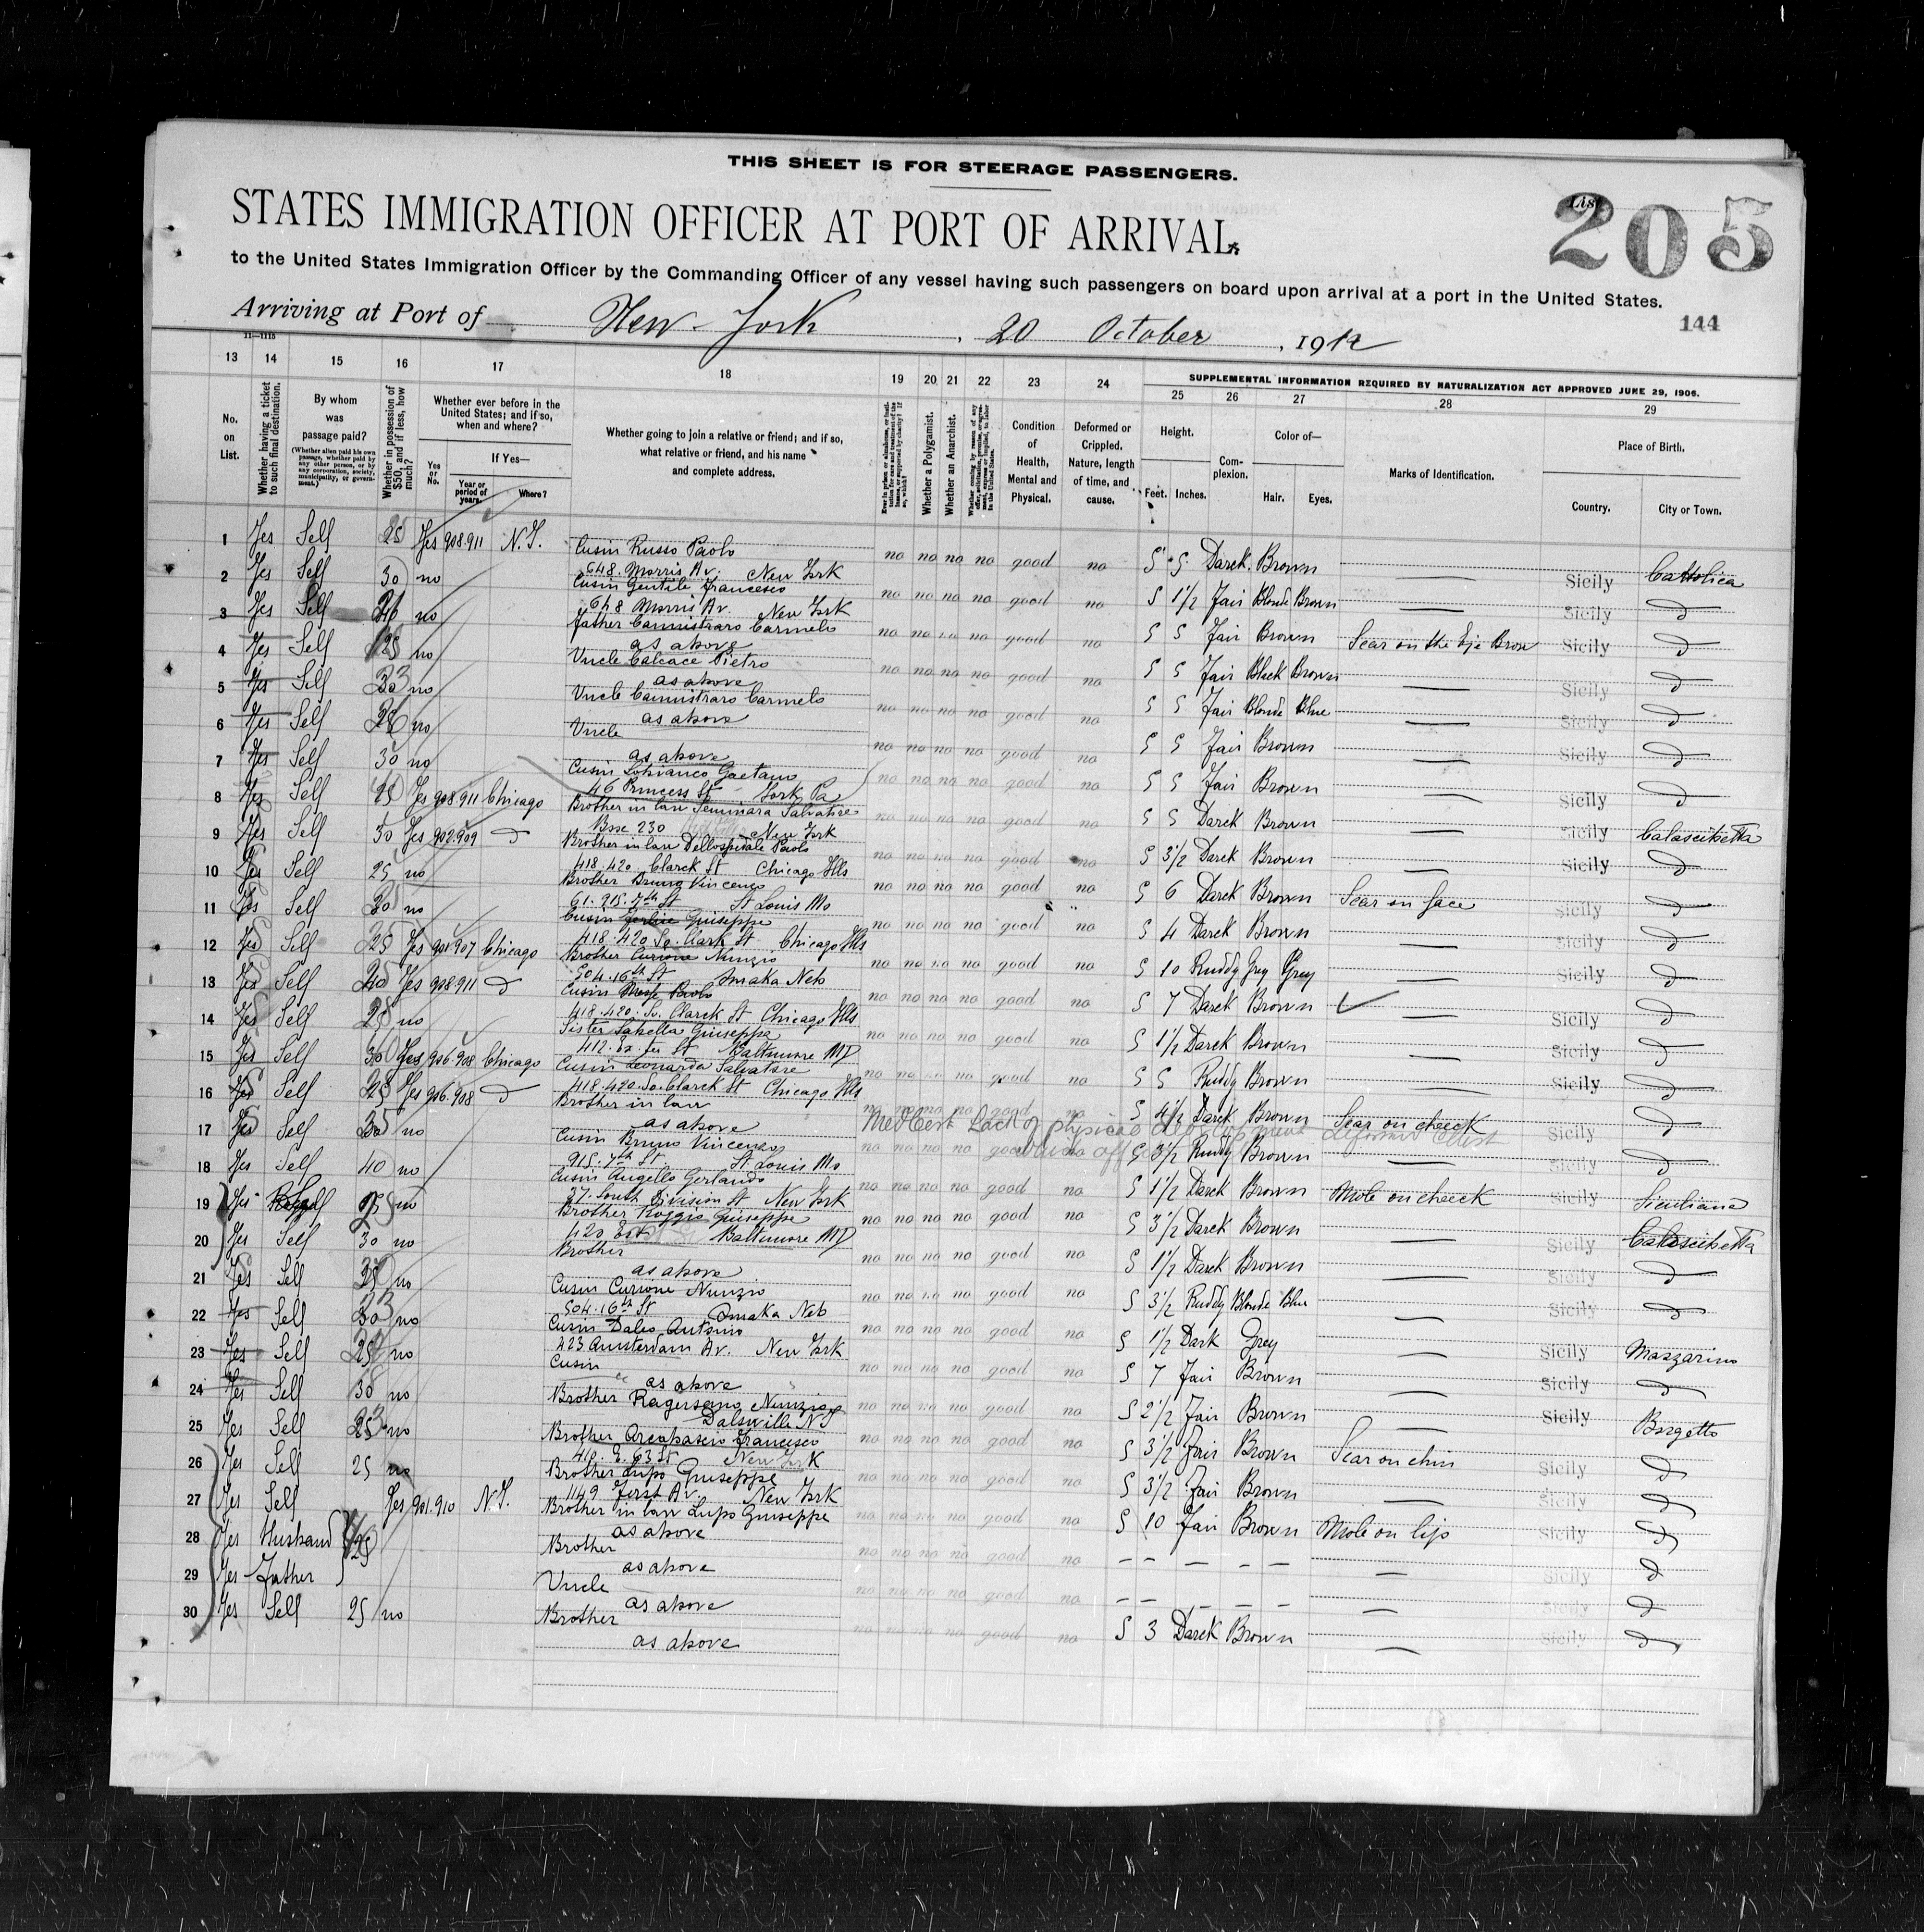 THIS SHEET IS FOR STEERAGE PASSENGERS.
STATES IMMIGRATION OFFICER AT PORT OF ARRIVAL
List 205
to the United States Immigration Officer by the Commanding Officer of any vessel having such passengers on board upon arrival at a port in the United States.
Arriving at Port of New-York, 20 October, 1912
144
11—1115
13 14 15 16 17 18 19 20 21 22 23 24
SUPPLEMENTAL INFORMATION REQUIRED BY NATURALIZATION ACT APPROVED JUNE 29, 1906.
25 26 27 28 29
No. on List.
Whether having a ticket to such final destination.
By whom was passage paid?
(Whether alien paid his own passage, whether paid by any other person, or by any corporation, society, municipality, or government.)
Whether in possession of $50, and if less, how much?
Whether ever before in the United States; and if so, when and where?
Yes or No.
If Yes—
Year or period of years.
Where?
Whether going to join a relative or friend; and if so, what relative or friend, and his name and complete address.
Whether a Polygamist.
Whether an Anarchist.
Condition of Health, Mental and Physical.
Deformed or Crippled. Nature, length of time, and cause.
Height.
Feet. Inches.
Complexion.
Color of—
Hair. Eyes.
Marks of Identification.
Place of Birth.
Country. City or Town.
1 Yes Self 25 Yes 908.911 N.Y. Cusin Russo Paolo
648. Morris Av. New York no no no no good no 5 5 Darek Brown — Sicily Cattolica
2 Yes Self 30 no Cusin Gentile Francesco
648 Morris Av. New York no no no no good no 5 1/2 Fair Blonde Brown — Sicily d
3 Yes Self no Father Cannistraro Carmelo
as above no no no no good no 5 5 Fair Brown Scar on the Eje Brow Sicily d
4 Yes Self 25 no Uncle Calcace Pietro
as above no no no no good no 5 5 Fair Black Brown — Sicily d
5 Yes Self no Uncle Cannistraro Carmelo
as above no no no no good no 5 5 Fair Blonde Blue — Sicily d
6 Yes Self no Uncle
as above no no no no good no 5 5 Fair Brown — Sicily d
7 Yes Self 30 no Cusin Gaetano
46 Princess St York Pa no no no no good no 5 5 Fair Brown — Sicily d
8 Yes Self 25 Yes 908.911 Chicago Brother in law Seminara Salvatore
230 New York no no no no good no 5 5 Darek Brown — Sicily Calascibetta
9 Yes Self 30 Yes 902.909 d Brother in law Dellospedale Paolo
418.420 Clarck St Chicago Ills no no no no good no 5 3 1/2 Darek Brown — Sicily d
10 Yes Self 25 no Brother Bruno Vincenzo
915.7th St St Louis Mo no no no no good no 5 6 Darek Brown Scar on face Sicily d
11 Yes Self 30 no Cusin Giuseppe
418.420 So. Clark St Chicago Ills no no no no good no 5 4 Darek Brown — Sicily d
12 Yes Self 25 Yes 901.907 Chicago Brother Curione Nunzio
504.16th St Omaka Neb no no no no good no 5 10 Ruddy Grey Grey — Sicily d
13 Yes Self 20 Yes 908.911 d Cusin Paolo
418.420. So. Clarck St Chicago Ills no no no no good no 5 7 Darek Brown Sicily d
14 Yes Self 25 no Sister Giuseppa
412. St Baltimore MD no no no no good no 5 1 1/2 Darek Brown — Sicily d
15 Yes Self 30 Yes 906.908 Chicago Cusin Leonarda Salvatore
418.420 So. Clarck St Chicago Ills no no no no good no 5 5 Ruddy Brown — Sicily d
16 Yes Self 25 Yes 906.908 d Brother in law
as above no no no no good no 5 4 1/2 Darek Brown Scar on cheeck Sicily d
Med Cert Lack of physical development deformed chest
17 Yes Self no Cusin Bruno Vincenzo
915.7th St St Louis Mo no no no no good no 5 3 1/2 Ruddy Brown — Sicily d
18 Yes Self 40 no Cusin Angello Gerlando
27. South Division St New York no no no no good no 5 1 1/2 Darek Brown Mole on cheeck Sicily Siculiana
19 Yes Self 25 no Brother Roggio Giuseppe
420 Baltimore MD no no no no good no 5 3 1/2 Darek Brown — Sicily Calascibetta
20 Yes Self 30 no Brother
as above no no no no good no 5 1 1/2 Darek Brown — Sicily d
21 Yes Self no Cusin Curione Nunzio
504.16th St Omaka Neb no no no no good no 5 3 1/2 Ruddy Blonde Blue — Sicily d
22 Yes Self no Cusin Daleo Antonio
423 Amsterdam Av. New York no no no no good no 5 1 1/2 Dark Grey — Sicily Mazzarino
23 Yes Self no Cusin
as above no no no no good no 5 7 Fair Brown — Sicily d
24 Yes Self 30 no Brother Nunzio
no no no no good no 5 2 1/2 Fair Brown — Sicily Borgetto
25 Yes Self no Brother Francesco
410. E. 63 St New York no no no no good no 5 3 1/2 Fair Brown Scar on chin Sicily d
26 Yes Self 25 no Brother Lupo Giuseppe
1149 First Av. New York no no no no good no 5 3 1/2 Fair Brown — Sicily d
27 Yes Self Yes 901.910 N.Y. Brother in law Lupo Giuseppe
as above no no no no good no 5 10 Fair Brown Mole on lip Sicily d
28 Yes Husband Brother
as above no no no no good no — Sicily d
29 Yes Father Uncle
as above no no no no good no — Sicily d
30 Yes Self 25 no Brother
as above no no no no good no 5 3 Darek Brown — Sicily d